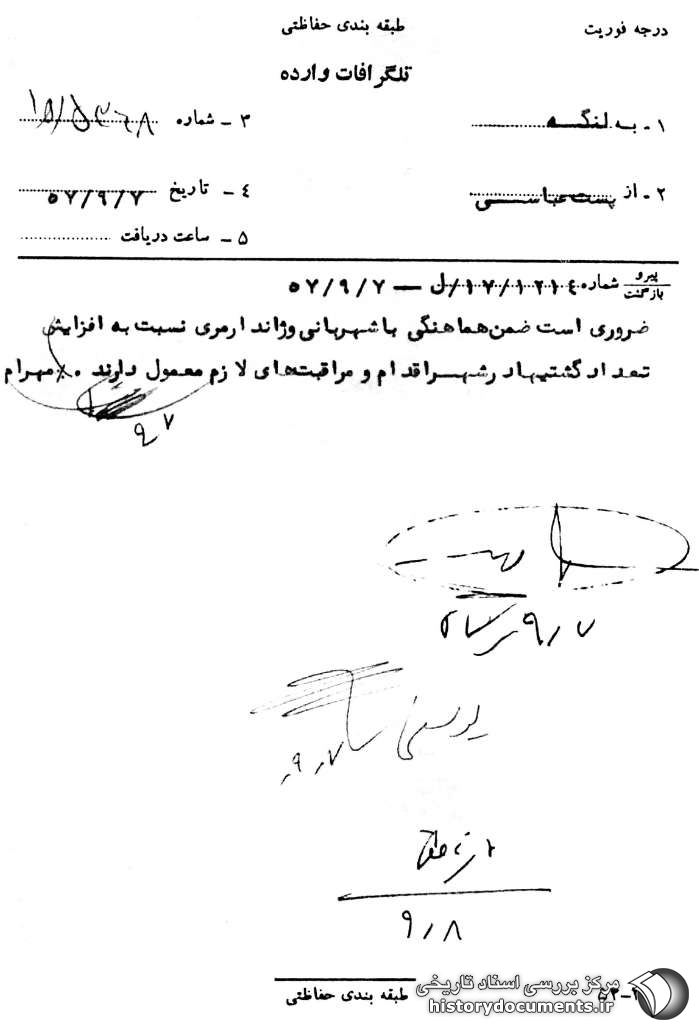 درجه فوریت
طبقه بندی حفاظتی
تلگرافات وارده
۱ - به لنگه
۳ - شماره
۲ - از پست عباسی
۴ - تاریخ ۵۷/۹/۷
۵ - ساعت دریافت
پیرو
بازگشت
شماره ۱۷/۱۲۱۴/ل — ۵۷/۹/۷
ضروری است ضمن هماهنگی با شهربانی وژاندارمری نسبت به افزایش
تعداد گشتیهادرشهراقدام و مراقبتهای لازم معمول دارند ۰٪ مهرام
۹ ۷
۹/۷
یوسفی
۹٫۷
۹٫۸
طبقه بندی حفاظتی
مرکز بررسی اسناد تاریخی
historydocuments.ir